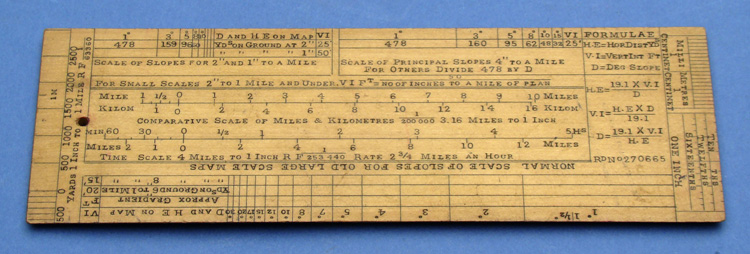 1° 3° 5° D AND H E ON MAP VI 1° 3° 5° 8° VI FORMULAE
478 159 YDS ON GROUND AT 2" 25' 478 160 95 62 48 25' H.E=HOR DIST YDS
" " " 1" 50' V.I=VERT INT FT
SCALE OF SLOPES FOR 2" AND 1" TO A MILE SCALE OF PRINCIPAL SLOPES 4" TO A MILE D=DEG SLOPE
FOR OTHERS DIVIDE 478 BY D
FOR SMALL SCALES 2" TO 1 MILE AND UNDER. VI FT = NO OF INCHES TO A MILE OF PLAN
H.E= 19.1 X V.I
D
MILE 1 ½ 0 1 2 3 4 5 6 7 8 9 10 MILES
KILOM 1 0 2 4 6 8 10 12 14 16 KILOM
COMPARATIVE SCALE OF MILES & KILOMETRES 200 000 3.16 MILES TO 1 INCH
V.I= H.E X D
19.1
MIN 60 30 0 ½ 1 2 3 4 5 HS
MILES 2 0 2 4 6 8 10 12 MILES
TIME SCALE 4 MILES TO 1 INCH R F 253 440 RATE 2¾ MILES AN HOUR
D= 19.1 X V.I
H.E
RD NO 270665
NORMAL SCALE OF SLOPES FOR OLD LARGE SCALE MAPS
15 " " 8" " "
20 YDS ON GROUND 6" TO 1 MILE
FT APPROX GRADIENT
VI D AND H E ON MAP 10 8 7° 6° 5° 4° 3° 2° 1½° 1°
500 0 500 1000 1500 2000 2500
YARDS 1 INCH TO 1 MILE R F 63360
1M
CENTIMET
MILLIMETRES
ONE INCH
SIXTEENTH
TWELFTHS
TENTHS